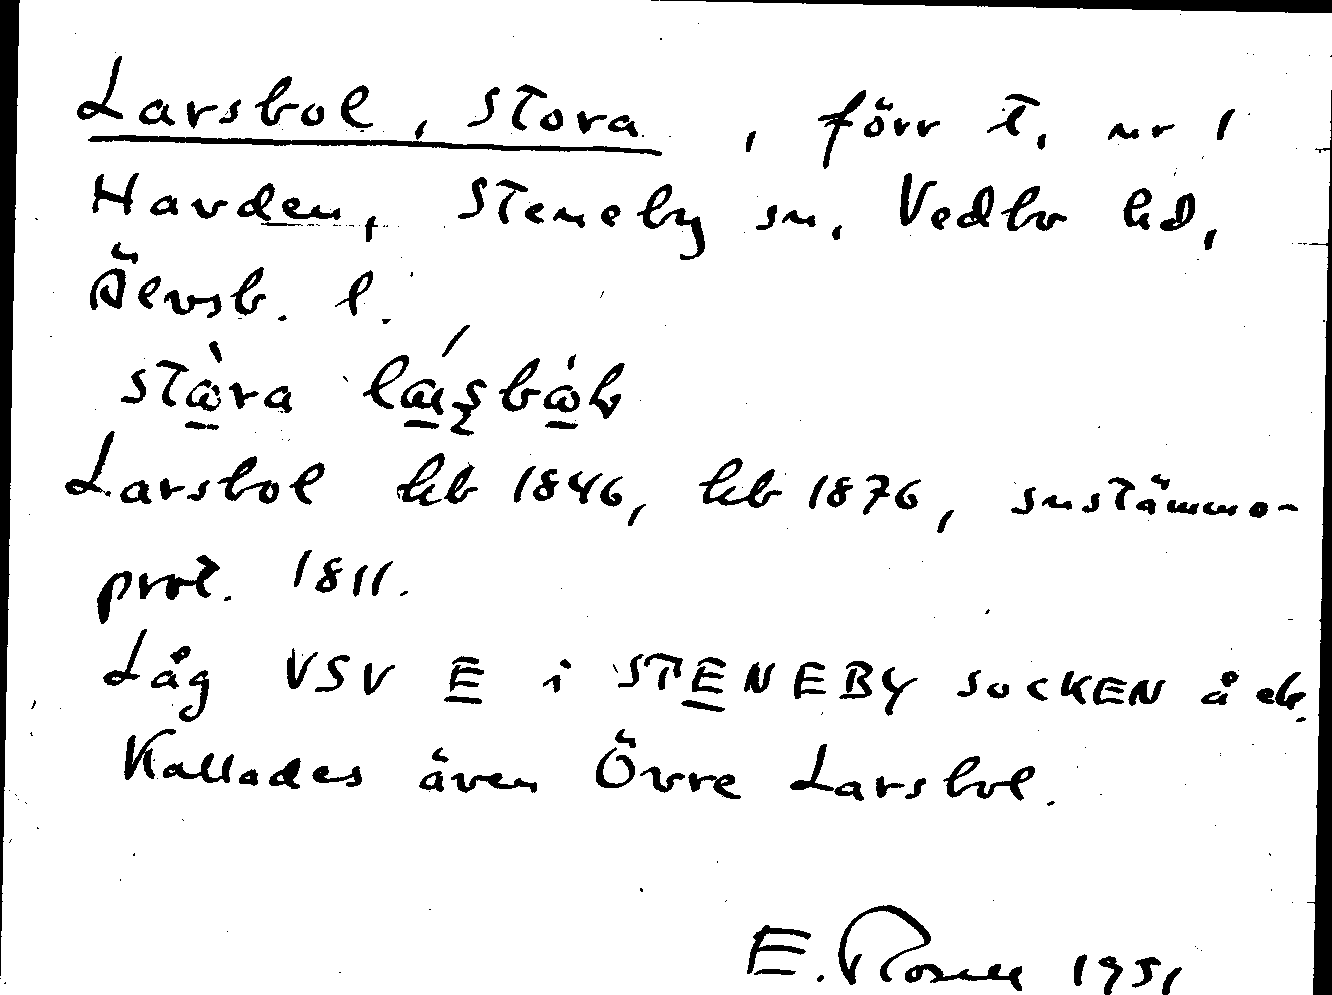 Larsbol, Stora, förr t. nr 1
Havden, Steneby sn, Vedbo hd,
Älvsb. l.
Larsbol hb 1846, hb 1876, snstämmo-
prot. 1811.
Låg VSV E i STENEBY SOCKEN å ek.
Kallades även Övre Larsbol.
E. Rosell 1951